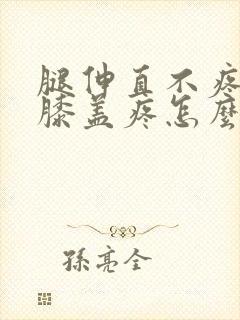 腿伸直不疼
膝盖疼怎麽
孫亮全